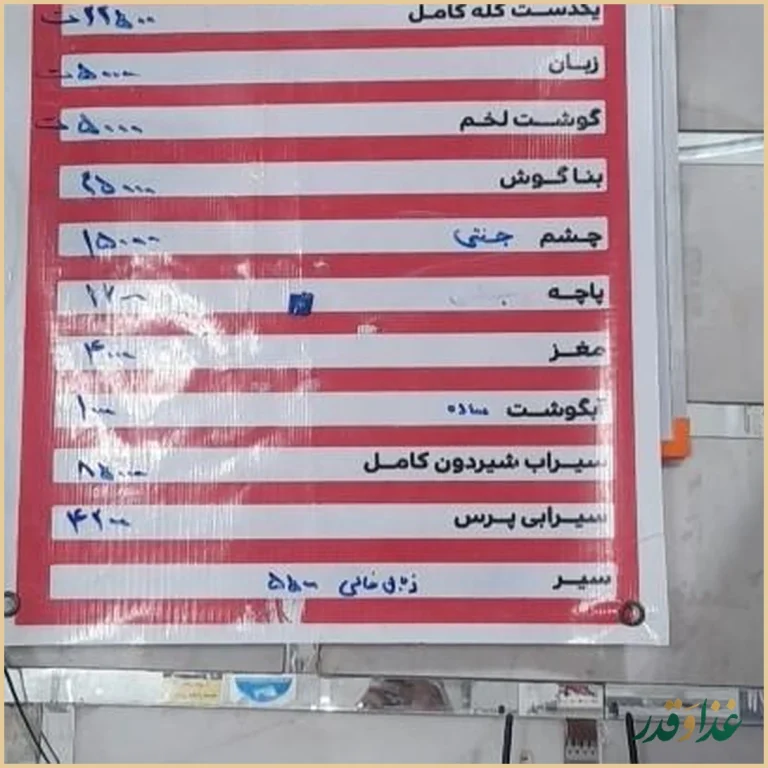 یکدست کله کامل ۲۲۵۰۰ ت
زبان ۵۰۰۰ ت
گوشت لخم ۵۰۰۰ ت
بنا گوش ۲۵۰۰۰
چشم جنتی ۱۵۰۰۰
پاچه ۱۷۰۰
مغز ۴۰۰۰
آبگوشت ساده ۱۰۰۰
سیراب شیردون کامل ۸۵۰۰۰
سیرابی پرس ۴۲۰۰
سیر زبان خالی ۵۵۰۰
غذا و قدر